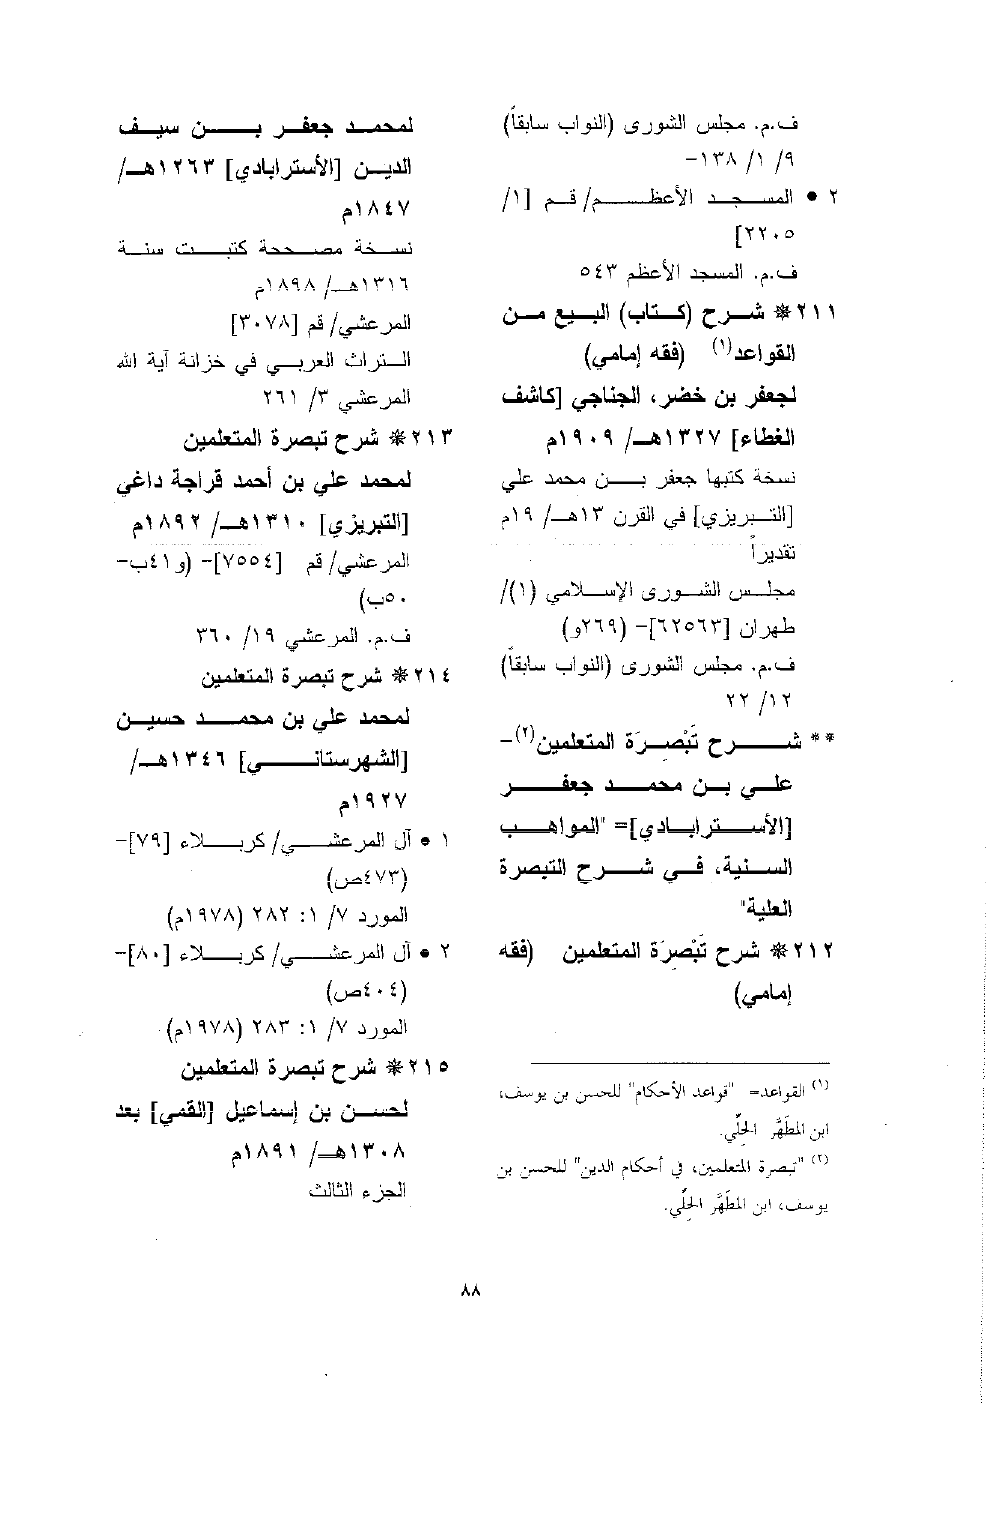 ف.م. مجلس الشورى (النواب سابقاً)
٩/ ١/ ١٣٨-
٢ • المسجد الأعظم/ قم [١/
٢٢٠٥]
ف.م. المسجد الأعظم ٥٤٣
٢١١* شرح (كتاب) البيع من
القواعد(١) (فقه إمامي)
لجعفر بن خضر، الجناجي [كاشف
الغطاء] ١٣٢٧هـ/ ١٩٠٩م
نسخة كتبها جعفر بن محمد علي
[التبريزي] في القرن ١٣هـ/ ١٩م
تقديراً
مجلس الشورى الإسلامي (١)/
طهران [٦٢٥٦٣]- (٢٦٩و)
ف.م. مجلس الشورى (النواب سابقاً)
١٢/ ٢٢
** شرح تَبْصِرَة المتعلمين(٢)-
علي بن محمد جعفر
[الأسترابادي]= "المواهب
السنية، في شرح التبصرة
العلية"
٢١٢* شرح تَبْصِرَة المتعلمين (فقه
إمامي)
(١) القواعد= "قواعد الأحكام" للحسن بن يوسف،
ابن المطَهَّر الحلّي.
(٢) "تبصرة المتعلمين، في أحكام الدين" للحسن بن
يوسف، ابن المطَهَّر الحلّي.
لمحمد جعفر بن سيف
الدين [الأسترابادي] ١٢٦٣هـ/
١٨٤٧م
نسخة مصححة كتبت سنة
١٣١٦هـ/ ١٨٩٨م
المرعشي/ قم [٣٠٧٨]
التراث العربي في خزانة آية الله
المرعشي ٣/ ٢٦١
٢١٣* شرح تبصرة المتعلمين
لمحمد علي بن أحمد قراجة داغي
[التبريزي] ١٣١٠هـ/ ١٨٩٢م
المرعشي/ قم [٧٥٥٤]- (و٤١ب-
٥٠ب)
ف.م. المرعشي ١٩/ ٣٦٠
٢١٤* شرح تبصرة المتعلمين
لمحمد علي بن محمد حسين
[الشهرستاني] ١٣٤٦هـ/
١٩٢٧م
١ • آل المرعشي/ كربلاء [٧٩]-
(٤٧٣ص)
المورد ٧/ ١: ٢٨٢ (١٩٧٨م)
٢ • آل المرعشي/ كربلاء [٨٠]-
(٤٠٤ص)
المورد ٧/ ١: ٢٨٣ (١٩٧٨م)
٢١٥* شرح تبصرة المتعلمين
لحسن بن إسماعيل [القمي] بعد
١٣٠٨هـ/ ١٨٩١م
الجزء الثالث
٨٨